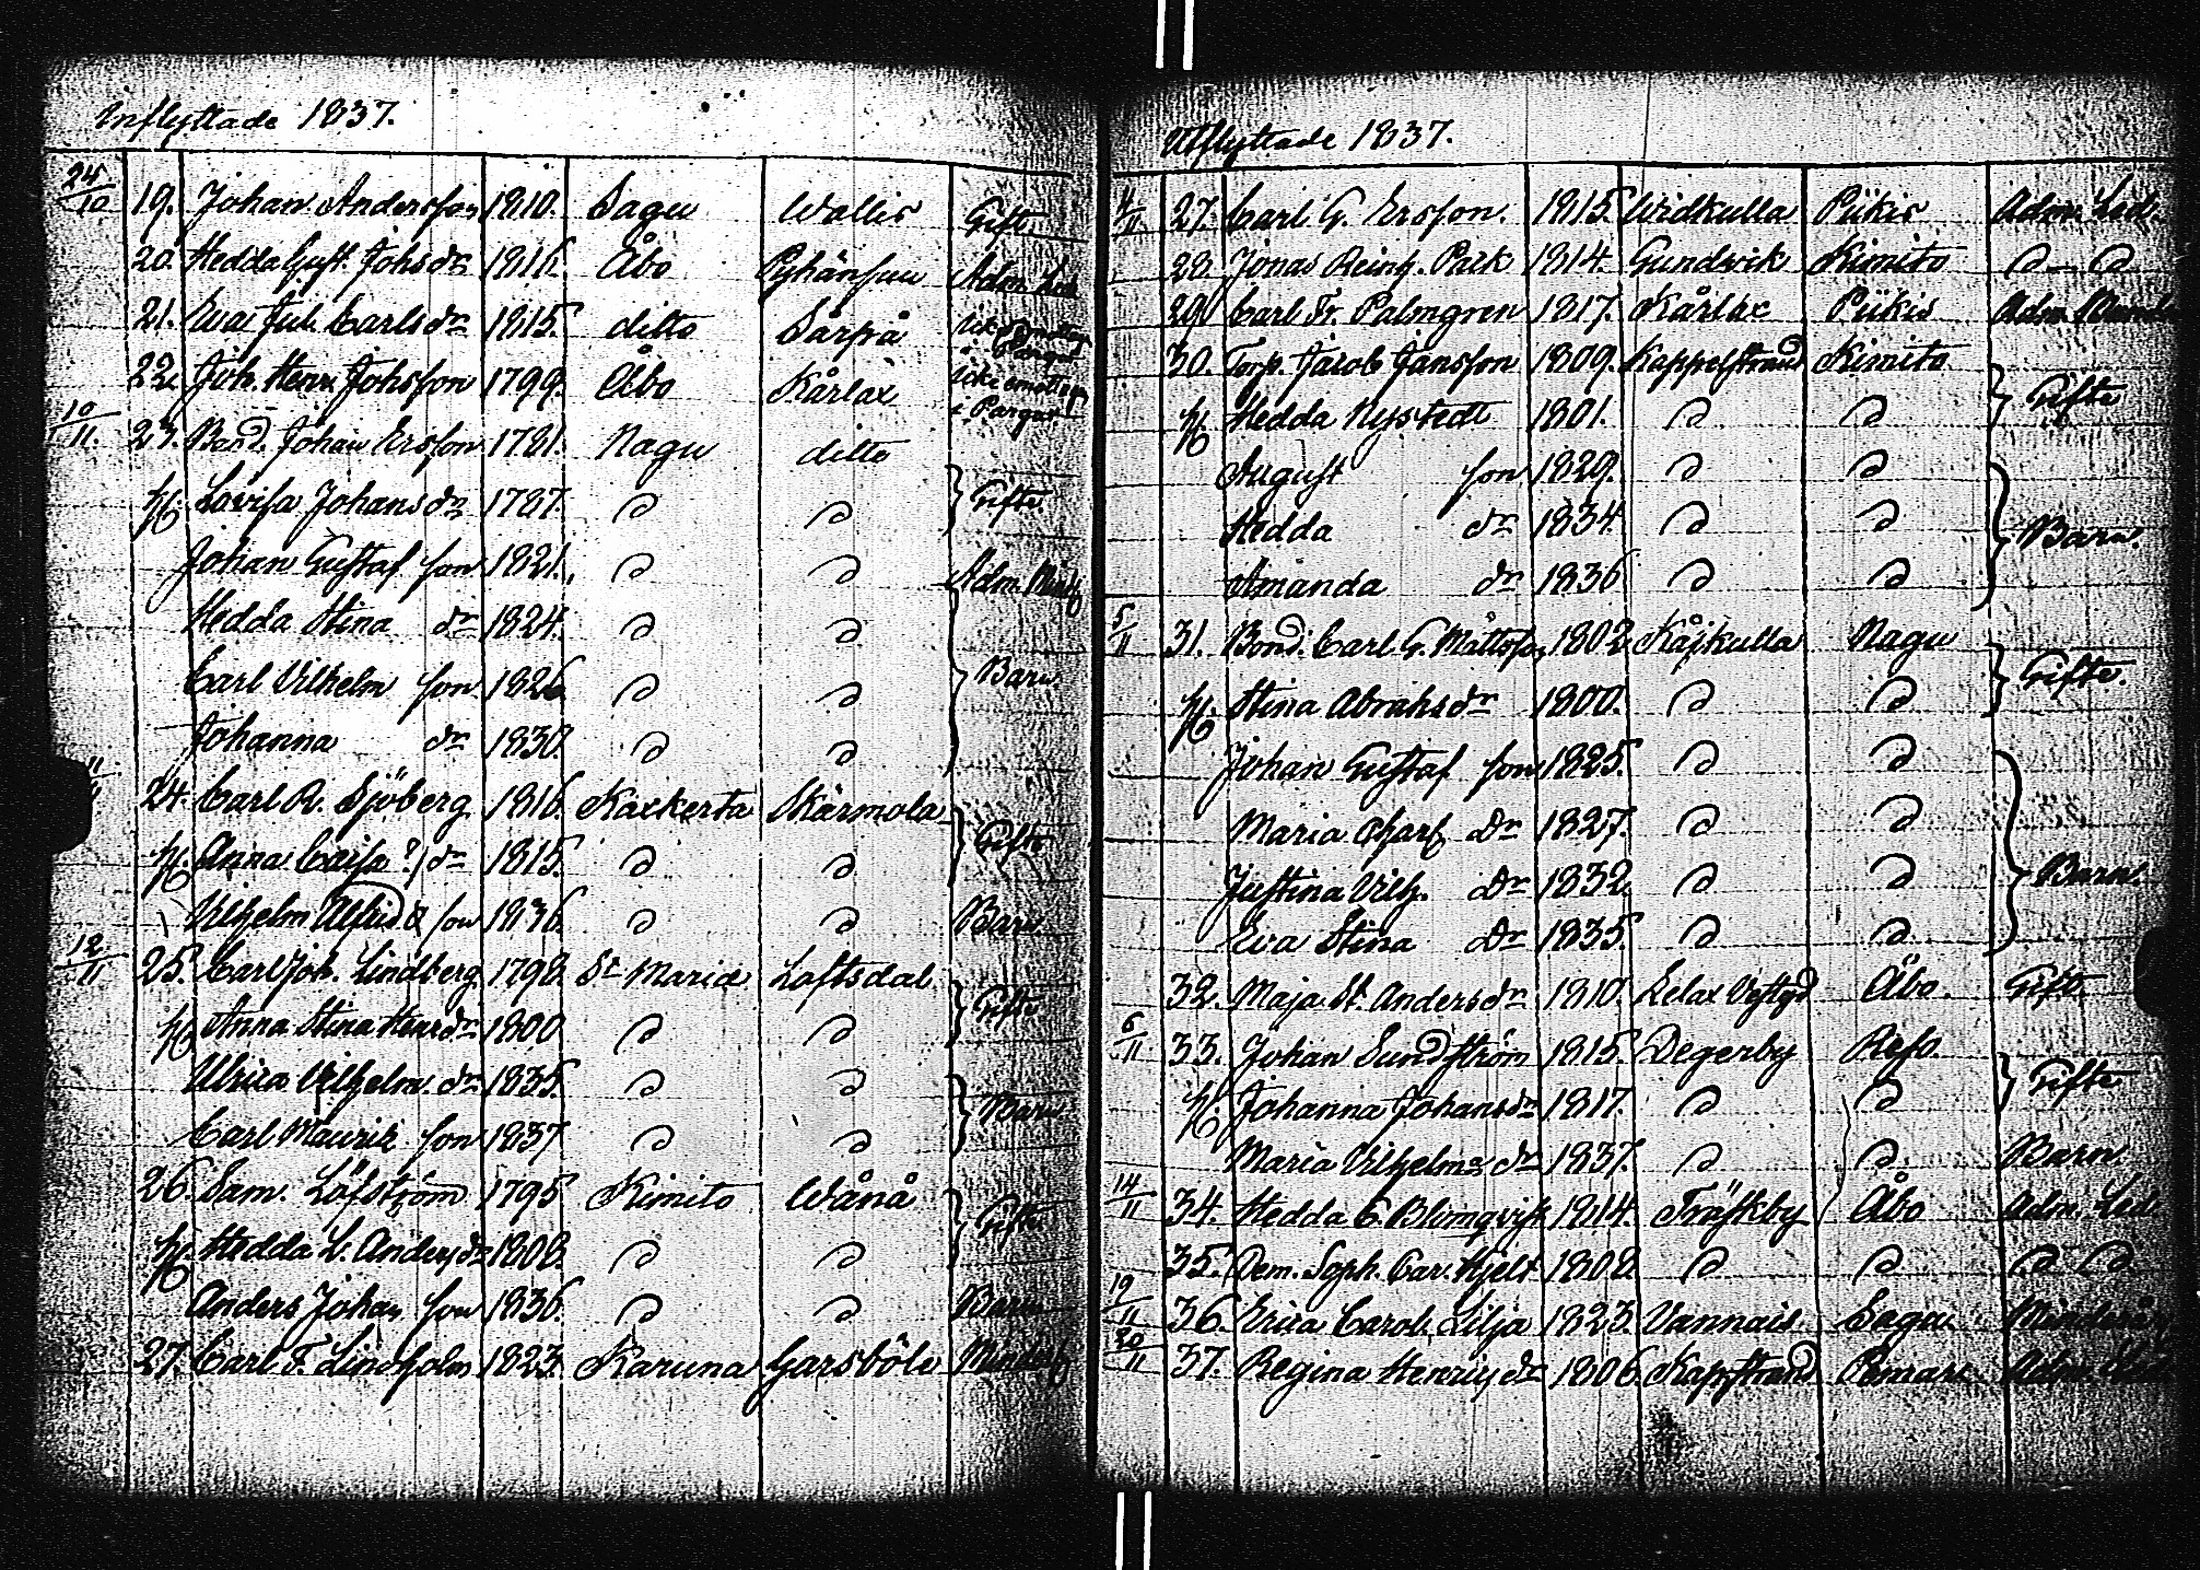 Inflyttade 1837.
24/10 19. Johan Andersson 1810. Sagu Wallis Gift.
20. Hedda Gust. Johsdr 1816. Åbo Pyhänsuu Adm. Led.
21. Eva Jul. Carlsdr 1815. ditto Sarpå Icke emottog. i Pargas
22. Joh. Henr. Johsson 1799. Åbo Kårlax Icke emottagn i Pargas!
10/11. 23. Bond. Johan Ersson 1781. Nagu ditto
h. Lovisa Johansdr 1787. d d Gifte.
Johan Gustaf son 1821. d d Adm.
Hedda Stina dr 1824. d d
Carl Vilhelm son 1826 d d Barn
Johanna dr 1830. d d
24. Carl R. Sjöberg 1816. Kaxkerta Skärmola
h. Anna Caisa ?) dr 1815. d d Gifte
Vilhelm Alfrid son 1836. d d Barn
12/11 25. Carl Joh. Lindberg 1798. St Maria Loftsdal
h. Anna Stina Henrsdr 1800 d d Gifte
Ulrica Vilhelm. dr 1835. d d
Carl Maurik son 1837 d d Barn
26. Sam. Löfström 1795 Kimito Wånå
h. Hedda L. Andersdr 1808. d d Gifte
Anders Johan son 1836. d d Barn
27. Carl F. Lindholm 1823. Karuna Garsböle
Utflyttade 1837.
4/11. 27. Carl G. Ersson. 1815. Widkulla Piikis Adm. Led.
28. Jonas Reinh. 1814. Gundvik Kimito d - d
29. Carl Fr. Palmgren 1817. Kårlax Piikis Adm.
30. Torp. Jacob Jansson 1809. Kappelstrand Kimito
h. Hedda Nystedt 1801. d d Gifte
August son 1829. d d
Hedda dr 1834. d d Barn.
Amanda dr 1836 d d
5/11 31. Bond. Carl G. Mattsson 1802. Kåjkulla Nagu
h. Stina Abrahsdr 1800. d d Gifte.
Johan Gustaf son 1825. d d
Maria Charl. Dr 1827. d d
Justina Vilh. Dr 1832. d d Barn.
Eva Stina Dr 1835. d d
32. Maja St. Andersdr 1810. Lelax Vestgd Åbo. Gift.
6/11 33. Johan Sundström 1815. Degerby Reso.
h. Johanna Johansdr 1817. d d Gifte
Maria Vilhelma dr 1837. d d Barn.
14/11 34. Hedda C. Blomqvist 1814. Träskby Åbo Adm. Led.
35. Dem. Soph. Car. Hjelt 1808. d d d d
19/11 36. Erica Carol. Lilja 1823. Vannais Sagu
20/11 37. Regina Henricsdr 1806. Kappstrand Pemarx Adm.